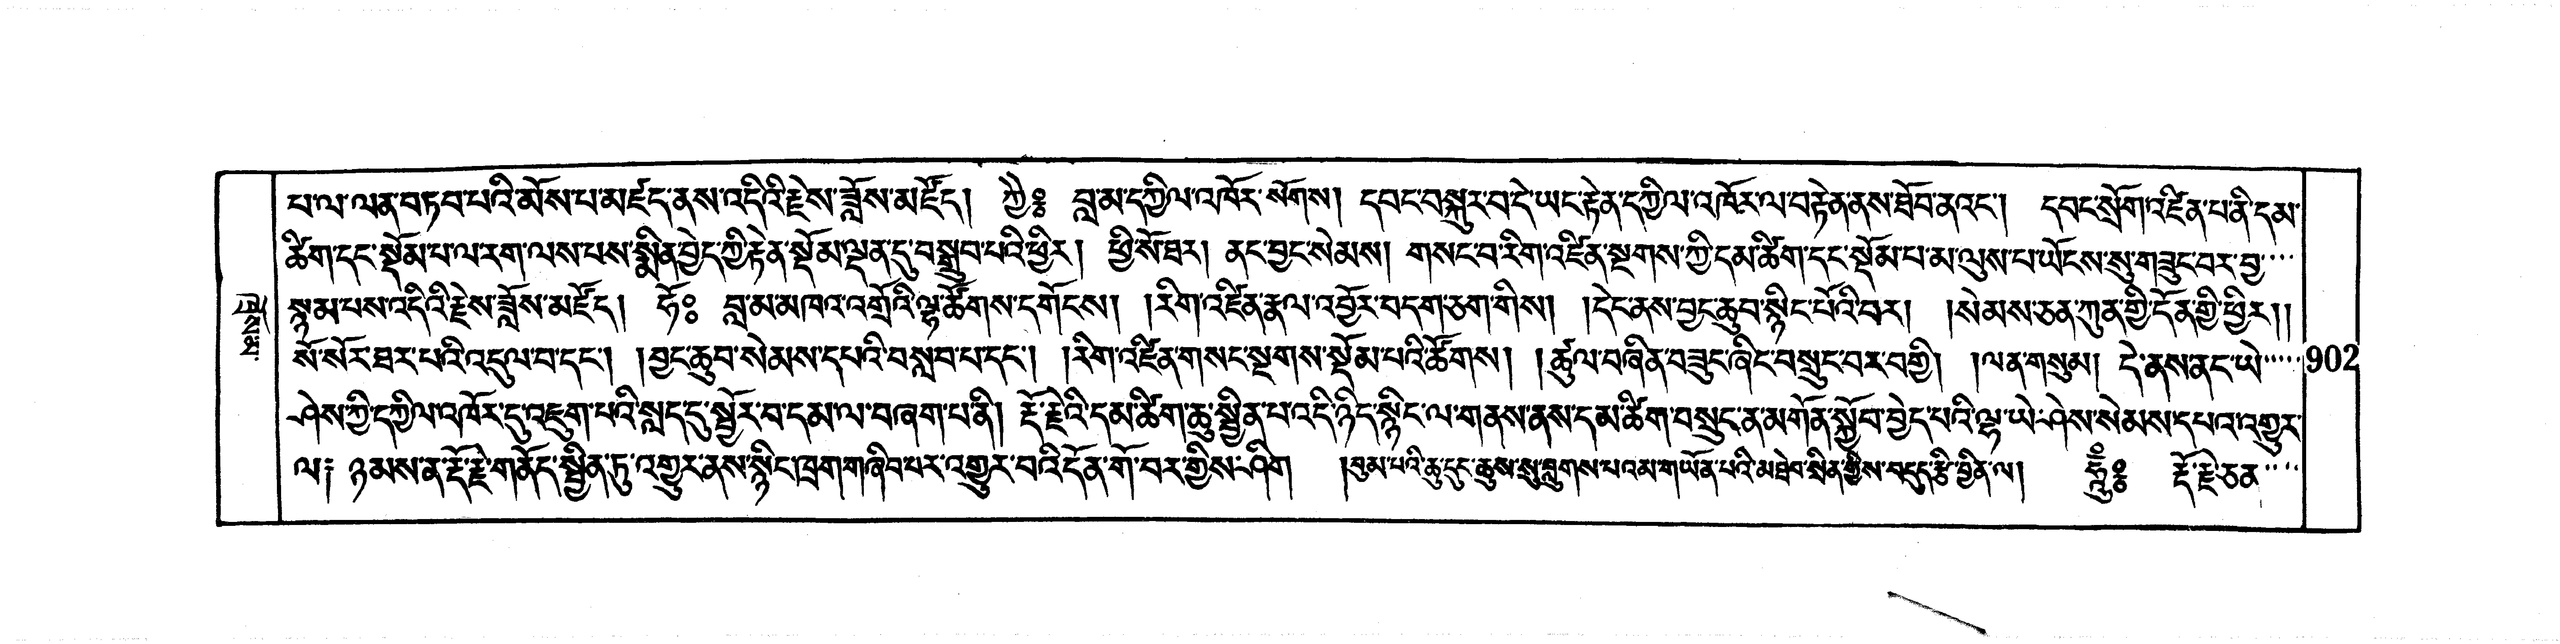 པ་ལ་ལན་བཏབ་པའི་མོས་པ་མཛད་ནས་འདིའི་རྗེས་ཟློས་མཛོད། ཀྱེ༔ བླ་མ་དཀྱིལ་འཁོར་སོགས། དབང་བསྐུར་བ་དེ་ཡང་རྟེན་དཀྱིལ་འཁོར་ལ་བརྟེན་ནས་ཐོབ་ནའང་། དབང་སྲོག་འཛིན་པ་ནི་དམ་
ཚིག་དང་སྡོམ་པ་ལ་རག་ལས་པས་སྨིན་བྱེད་ཀྱི་རྟེན་སྡོམ་ལྡན་དུ་བསྒྲུབ་པའི་ཕྱིར། ཕྱི་སོ་ཐར། ནང་བྱང་སེམས། གསང་བ་རིག་འཛིན་སྔགས་ཀྱི་དམ་ཚིག་དང་སྡོམ་པ་མ་ལུས་པ་ཡོངས་སུ་གཟུང་བར་བྱ་····
སྙམ་པས་འདིའི་རྗེས་ཟློས་མཛོད། ཧོ༔ བླ་མ་མཁའ་འགྲོའི་ལྷ་ཚོགས་དགོངས། །རིག་འཛིན་རྣལ་འབྱོར་བདག་ཅག་གིས། །དེང་ནས་བྱང་ཆུབ་སྙིང་པོའི་བར། །སེམས་ཅན་ཀུན་གྱི་དོན་གྱི་ཕྱིར།།
སོ་སོར་ཐར་པའི་འདུལ་བ་དང་། །བྱང་ཆུབ་སེམས་དཔའི་བསླབ་པ་དང་། །རིག་འཛིན་གསང་སྔགས་སྡོམ་པའི་ཚོགས། །ཚུལ་བཞིན་བཟུང་ཞིང་བསྲུང་བར་བགྱི། །ལན་གསུམ། དེ་ནས་ནང་ཡེ་·····
ཤེས་ཀྱི་དཀྱིལ་འཁོར་དུ་འཇུག་པའི་སླད་དུ་སྦྱོར་བ་དམ་ལ་བཞག་པ་ནི། རྡོ་རྗེའི་དམ་ཚིག་ཆུ་སྦྱིན་པ་འདི་ཉིད་སྙིང་ལ་གནས་ནས་དམ་ཚིག་བསྲུང་ན་མགོན་སྐྱོབ་བྱེད་པའི་ལྷ་ཡེ་ཤེས་སེམས་དཔའ་འགྱུར་
ལ༔ ཉམས་ན་རྡོ་རྗེ་གནོད་སྦྱིན་ཏུ་འགྱུར་ནས་སྙིང་ཁྲག་གཞིབ་པར་འགྱུར་བའི་དོན་གོ་བར་གྱིས་ཤིག །བུམ་པའི་ཆུ་དུང་ཆུས་སུ་བླུགས་པའམ་གཡོན་པའི་མཐེབ་སྲིན་གྱིས་བདུད་རྩི་བྱིན་ལ། ཧཱུྃ༔ རྡོ་རྗེ་ཅན་····
902